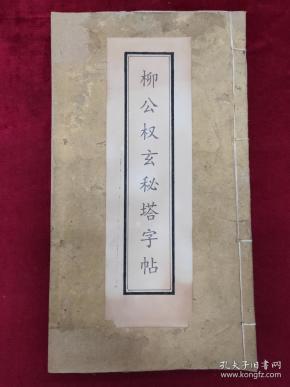 柳公权玄秘塔字帖
孔夫子旧书网